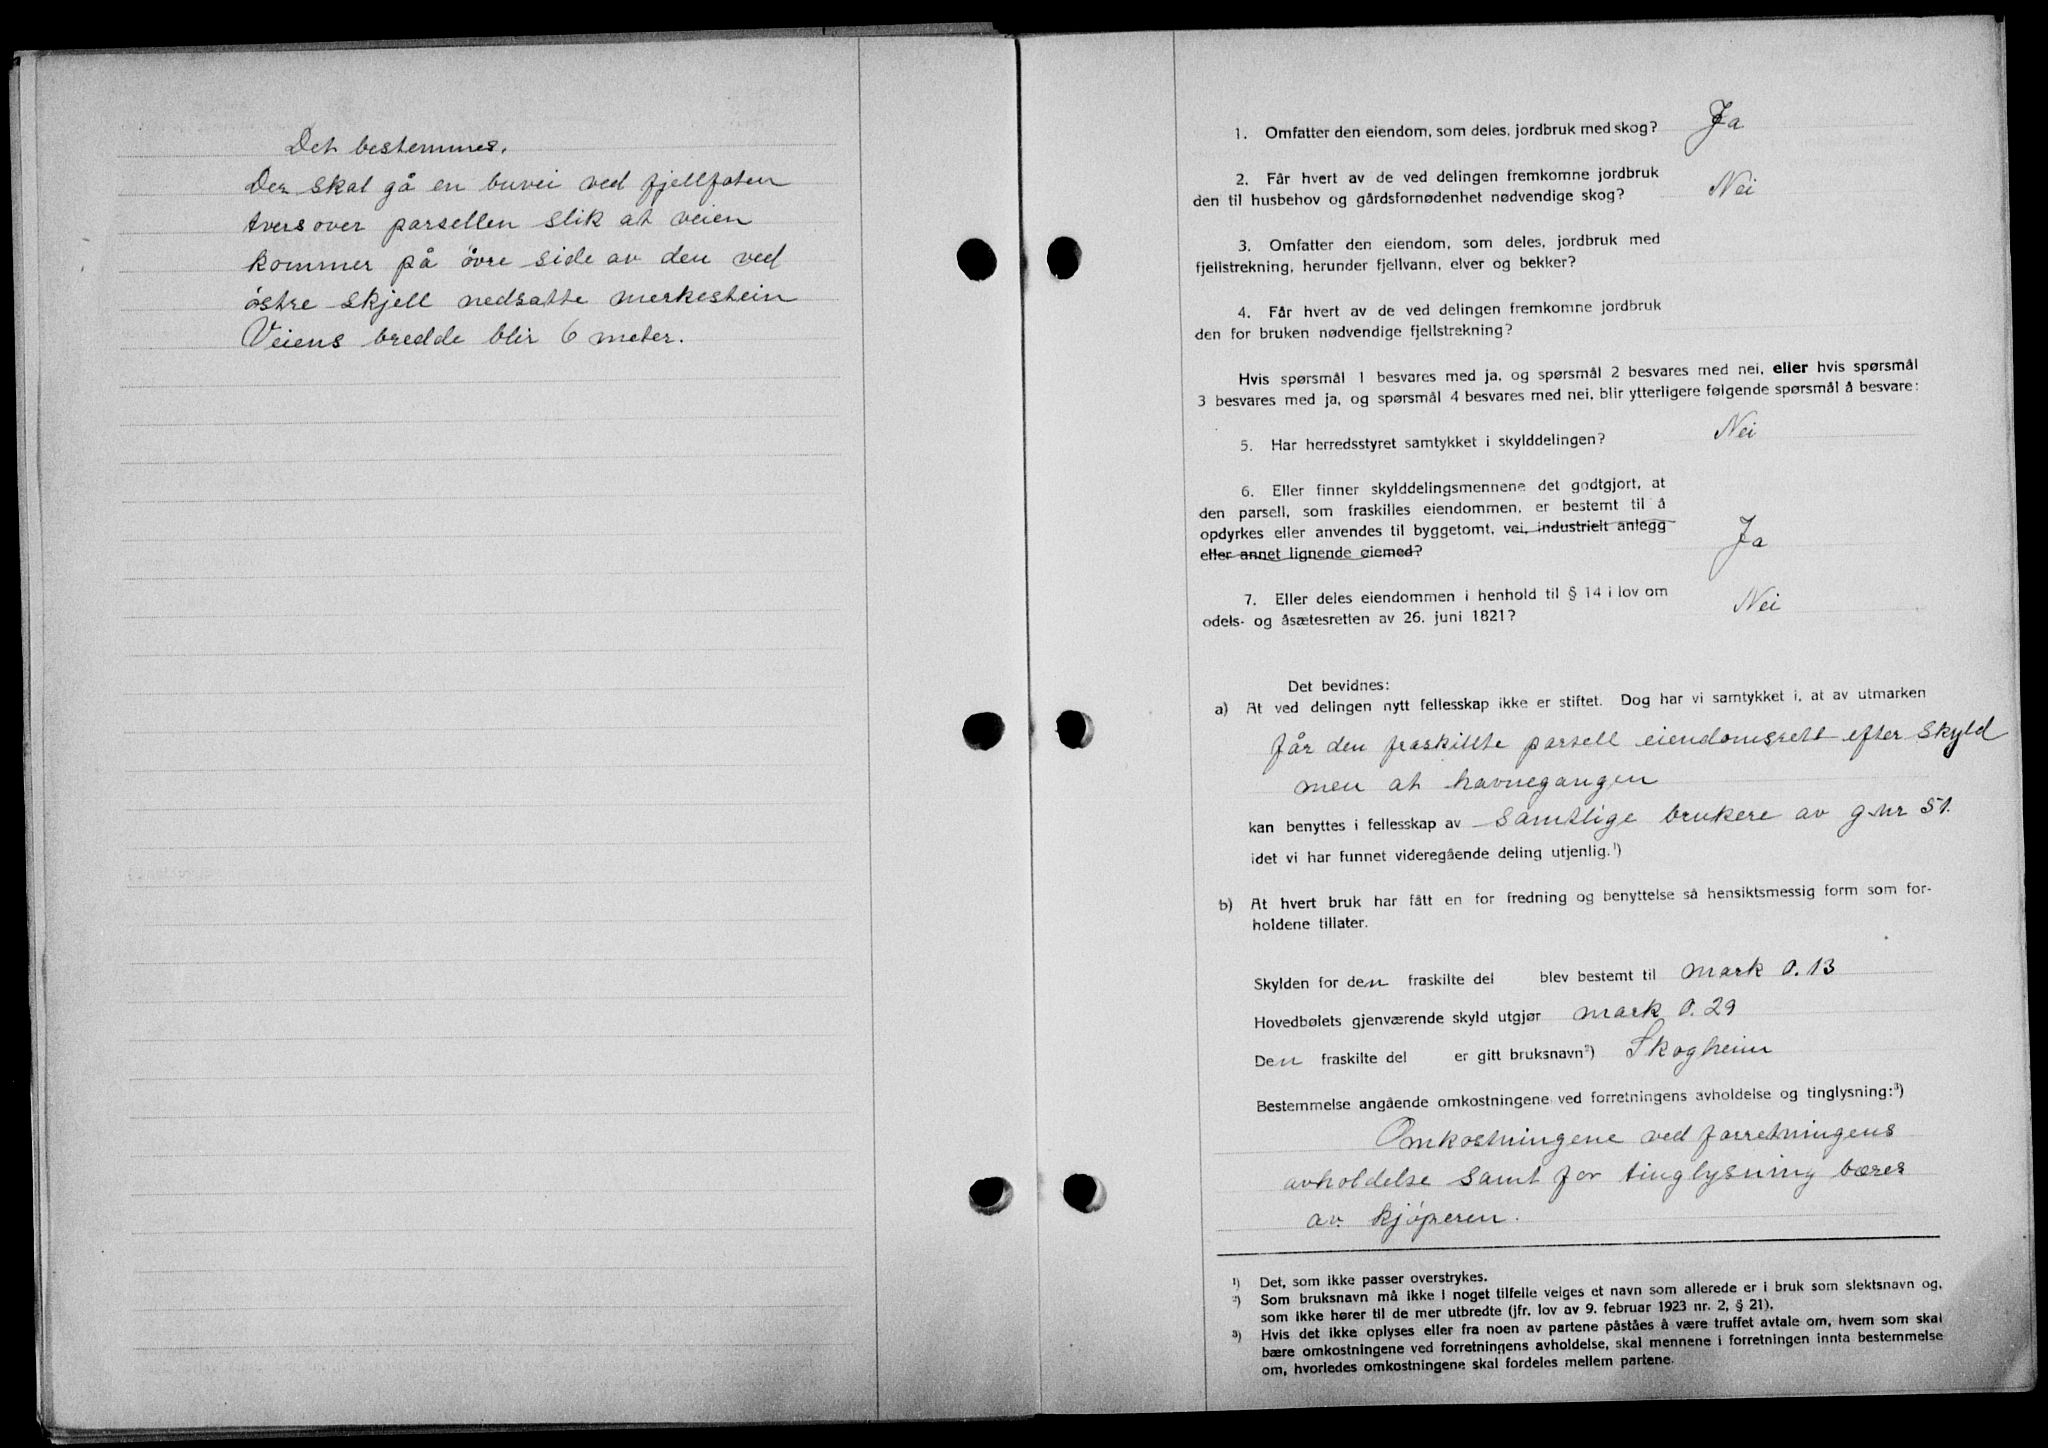 Det bestemmes.
Der skal gå en buvei ved fjellfoten
tversover parsellen slik at veien
kommer på övre side av den ved
östre skjell nedsatte merkestein
Veiens bredde blir 6 meter.
1. Omfatter den eiendom, som deles, jordbruk med skog? Ja
2. Får hvert av de ved delingen fremkomne jordbruk
den til husbehov og gårdsfornødenhet nødvendige skog? Nei
3. Omfatter den eiendom, som deles, jordbruk med
fjellstrekning, herunder fjellvann, elver og bekker?
4. Får hvert av de ved delingen fremkomne jordbruk
den for bruken nødvendige fjellstrekning?
Hvis spørsmål 1 besvares med ja, og spørsmål 2 besvares med nei, eller hvis spørsmål
3 besvares med ja, og spørsmål 4 besvares med nei, blir ytterligere følgende spørsmål å besvare:
5. Har herredsstyret samtykket i skylddelingen? Nei
6. Eller finner skylddelingsmennene det godtgjort, at
den parsell, som fraskilles eiendommen, er bestemt til å
opdyrkes eller anvendes til byggetomt, vei, industrielt anlegg
eller annet lignende øiemed? Ja
7. Eller deles eiendommen i henhold til § 14 i lov om
odels- og åsætesretten av 26. juni 1821? Nei
Det bevidnes:
a) At ved delingen nytt fellesskap ikke er stiftet. Dog har vi samtykket i, at av utmarken
får den fraskillte parsell eiendomsrett efter skyld
men at havnegangen
kan benyttes i fellesskap av samtlige brukere av g.nr 51.
idet vi har funnet videregående deling utjenlig.¹)
b) At hvert bruk har fått en for fredning og benyttelse så hensiktsmessig form som for-
holdene tillater.
Skylden for den fraskilte del blev bestemt til mark 0.13
Hovedbølets gjenværende skyld utgjør mark 0.29
Den fraskilte del er gitt bruksnavn²) Skogheim
Bestemmelse angående omkostningene ved forretningens avholdelse og tinglysning:³)
Omkostningene ved forretningens
avholdelse samt for tinglysning bæres
av kjöperen.
¹) Det, som ikke passer overstrykes.
²) Som bruksnavn må ikke i noget tilfelle velges et navn som allerede er i bruk som slektsnavn og,
som ikke hører til de mer utbredte (jfr. lov av 9. februar 1923 nr. 2, § 21).
³) Hvis det ikke oplyses eller fra noen av partene påståes å være truffet avtale om, hvem som skal
bære omkostningene ved forretningens avholdelse, skal mennene i forretningen innta bestemmelse
om, hvorledes omkostningene skal fordeles mellem partene.